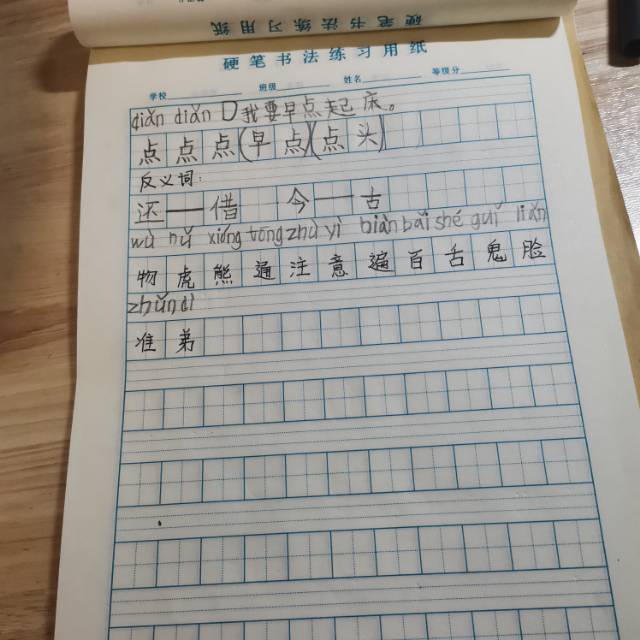 硬笔书法练习用纸
硬笔书法练习用纸
学校 班级 姓名 等级分
diǎn diǎn 我要早点起床。
点 点 点(早点)(点头)
反义词:
还——借 今——古
wù hǔ xióng tōng zhù yì biàn bǎi shé guǐ liǎn
物 虎 熊 通 注 意 遍 百 舌 鬼 脸
zhǔn dì
准 弟